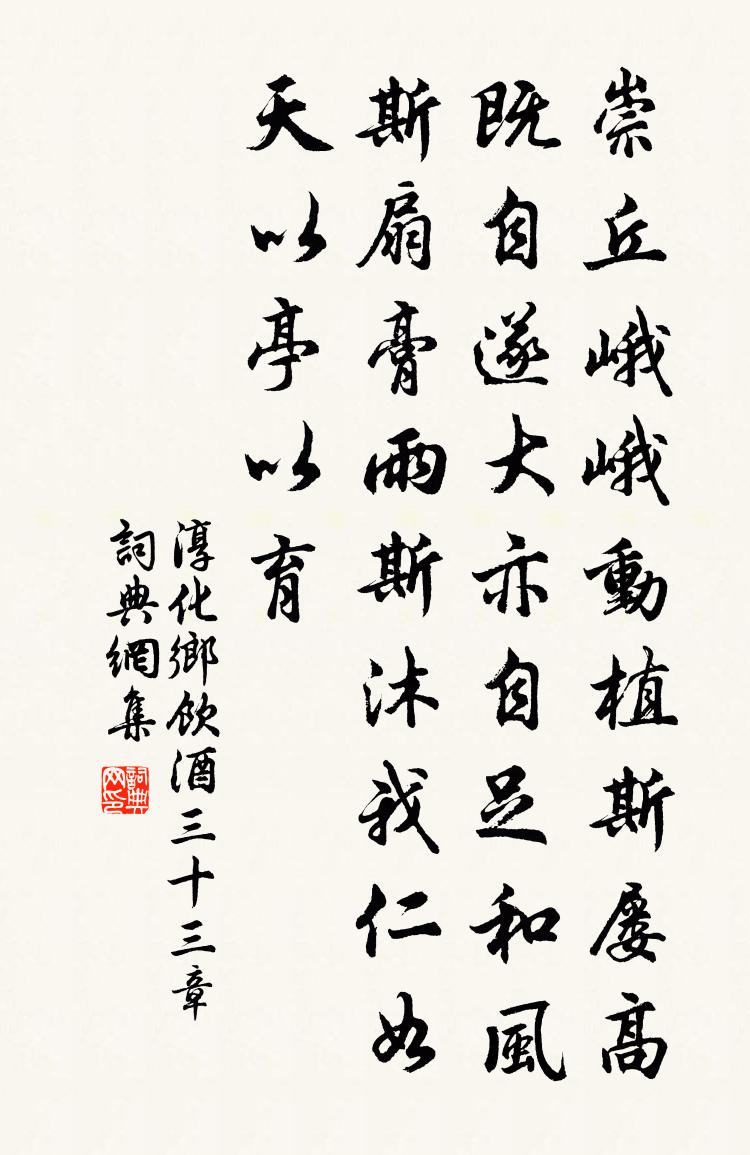 崇丘峨峨動植斯屡高
既自遂大亦自足和風
斯扇膏雨斯沐我仁如
天以亭以育
淳化鄉飲酒三十三章
詞典網集
詞典网印